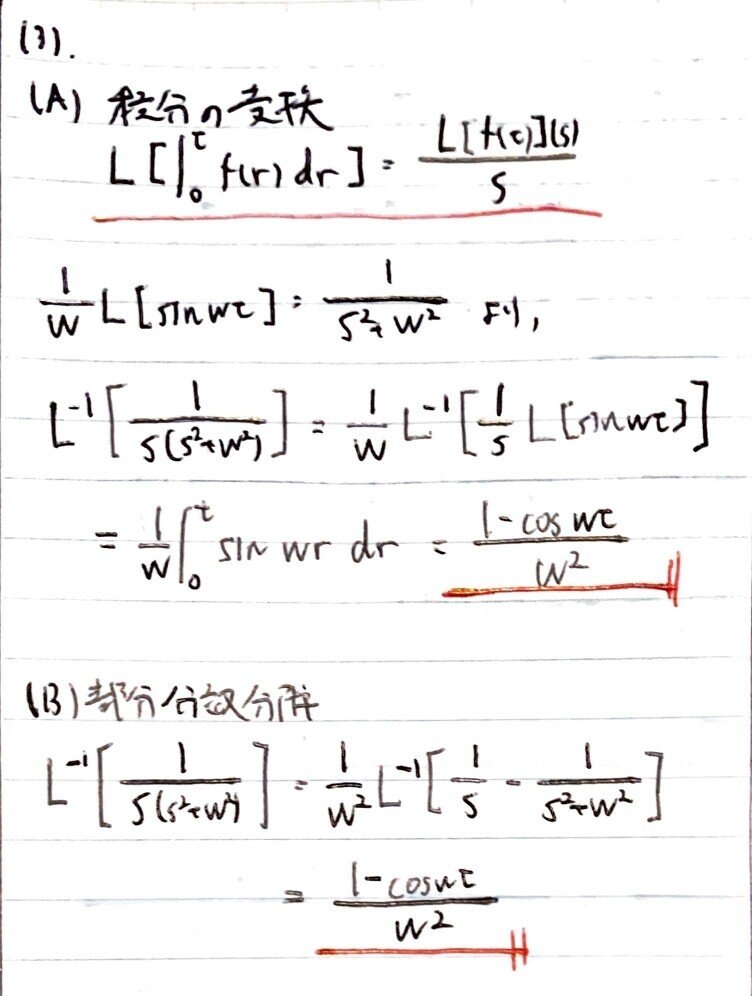 (3).
(A) 積分の変換
L[∫₀ᵗ f(r) dr] = L[f(t)](s) / s
1/w L[sin wt] = 1/(s²+w²) より,
L⁻¹[1/(s(s²+w²))] = 1/w L⁻¹[1/s L[sin wt]]
= 1/w ∫₀ᵗ sin wr dr = (1-cos wt)/w²
(B) 部分分数分解
L⁻¹[1/(s(s²+w²))] = 1/w² L⁻¹[1/s - 1/(s²+w²)]
= (1-cos wt)/w²